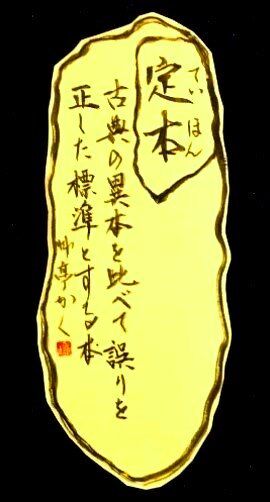 定本
ていほん
古典の異本を比べて誤りを
正した標準とする本